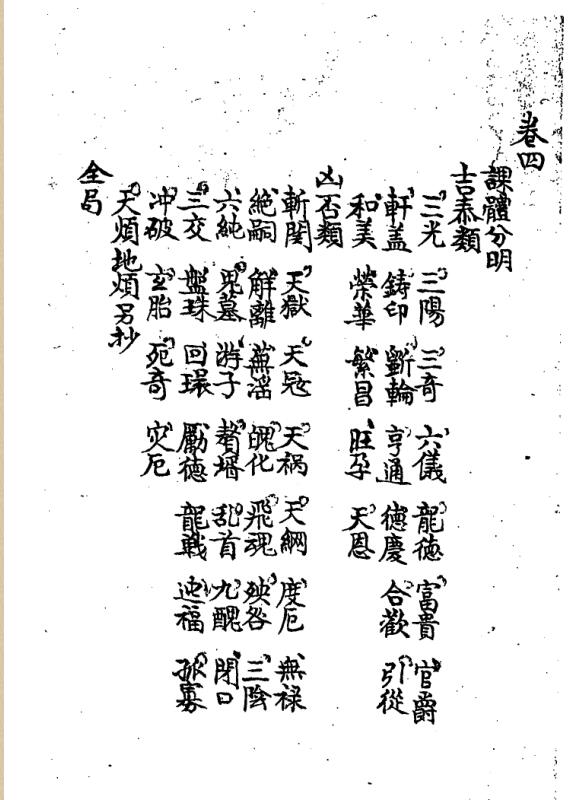 卷四
課體分明
吉泰類
三光 三陽 三奇 六儀 龍德 富貴 官爵
軒盖 鋳印 斵輪 亨通 德慶 合歡 引從
和美 榮華 繁昌 旺孕 天恩
凶否類
斬関 天獄 天寇 天禍 天網 度厄 無禄
絕嗣 解離 蕪滛 魄化 飛魂 殃咎 三陰
六純 鬼墓 游子 贅壻 乱首 九醜 閉口
三交 盤珠 回環 勵德 龍戰 迍福 孤寡
冲破 玄胎 死奇 灾厄
天煩地煩另抄
全局